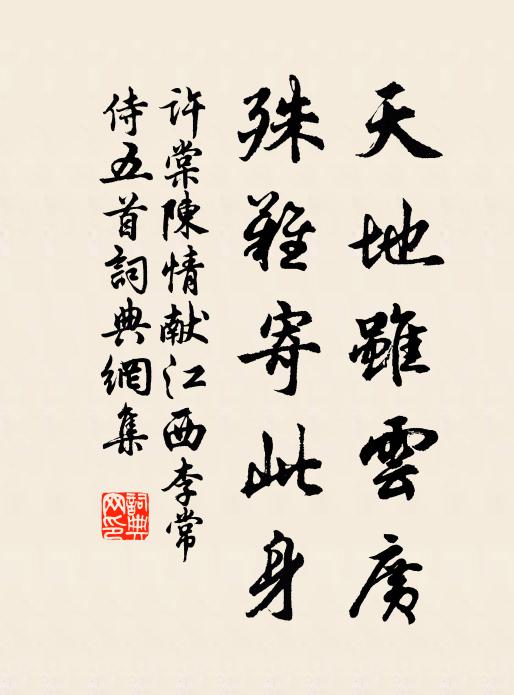 天地雖雲廣
殊難寄此身
許棠陳情献江西李常
侍五首詞典網集
詞典
网印